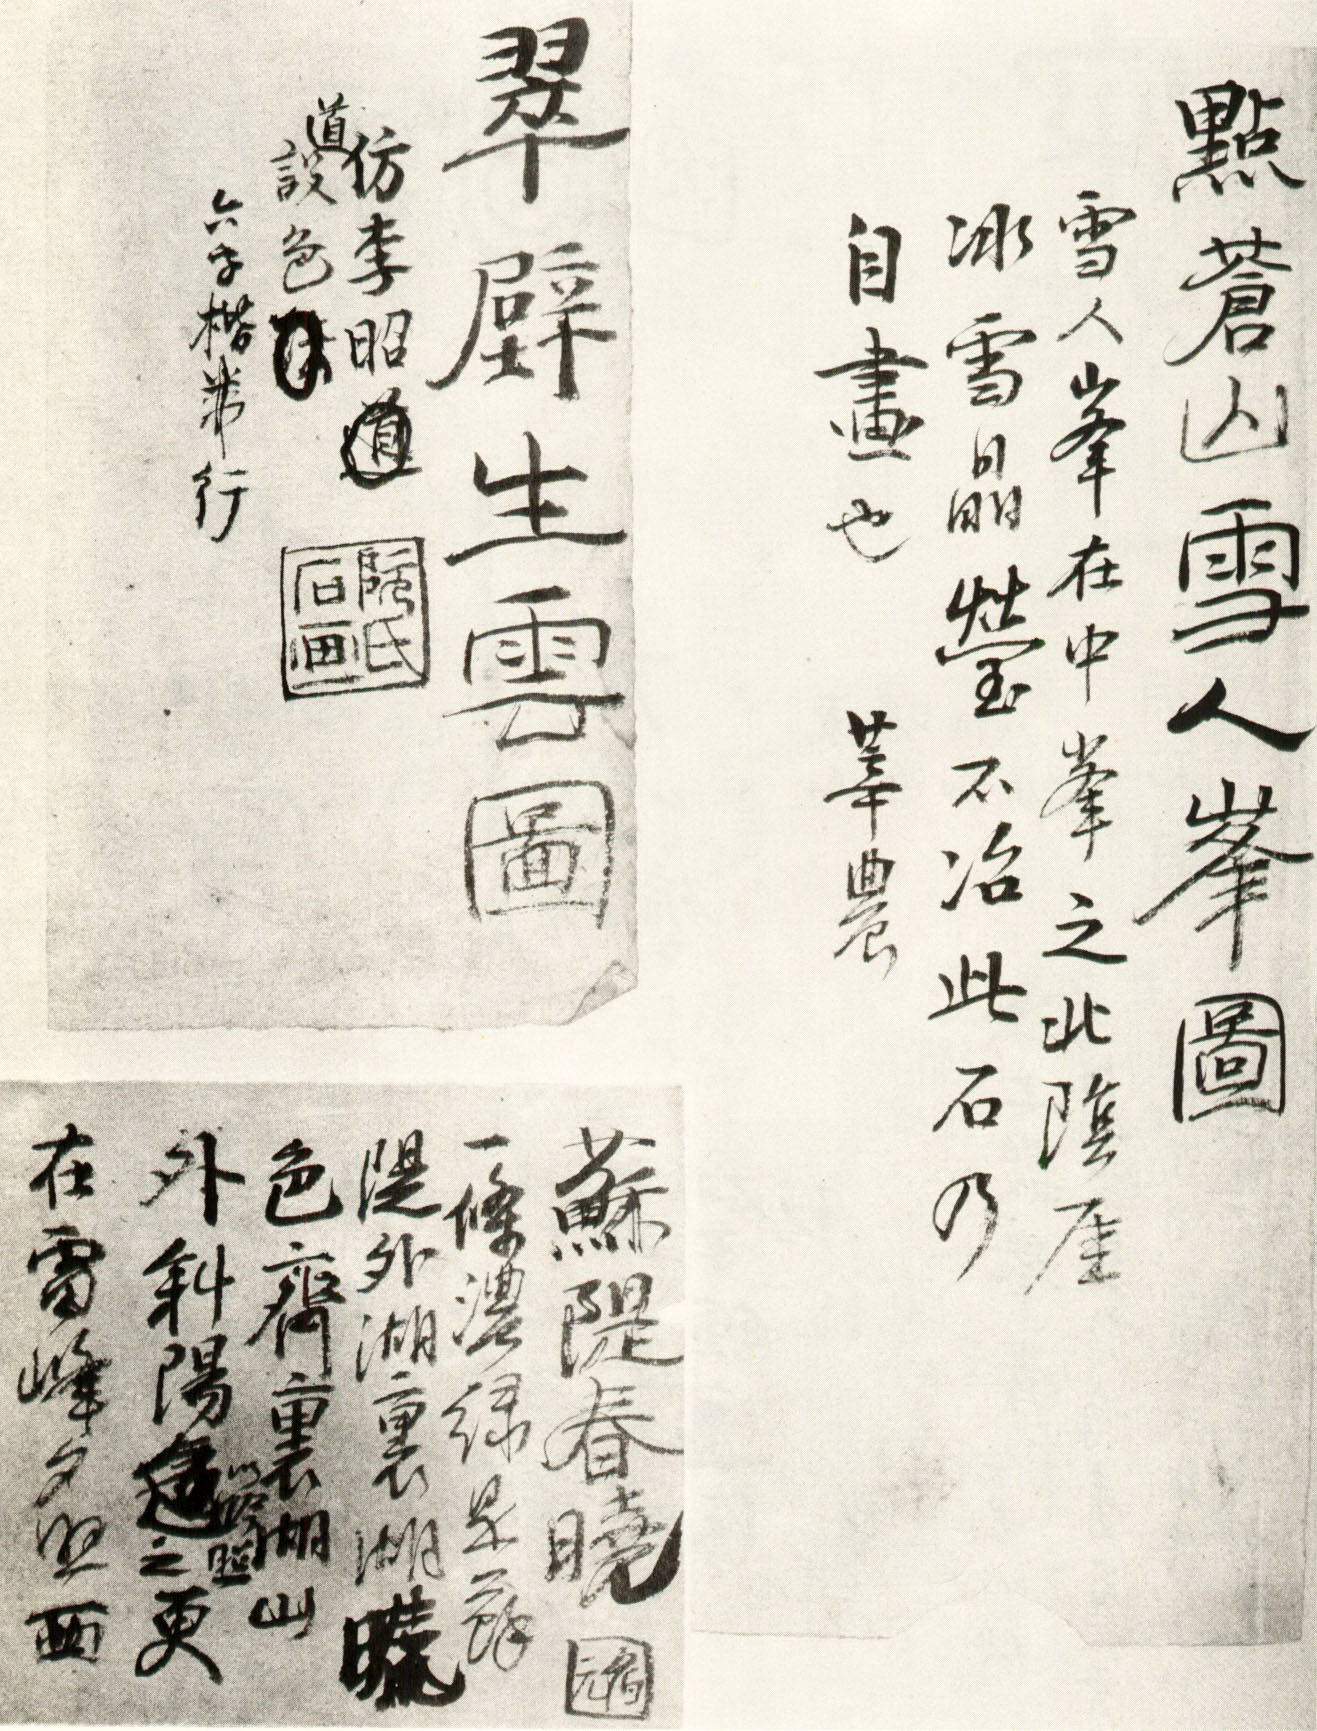 點蒼山雪人峯圖
雪人峯在中峯之北陰厓
冰雪晶瑩不冶此石乃
自畫也 莘農
翠壁生雲圖
仿李昭道
道
設色
六字楷書行
阮氏
石画
蘇隄春曉
一條濃綠是蘇
隄外湖裏湖曉
色齊裏湖山
外斜陽之更
照
在雷峰夕照西